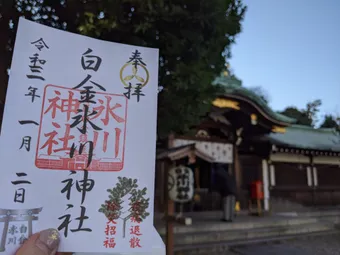 奉拝
白金氷川神社
氷川
神社
令和三年一月二日
白金
氷川
招福